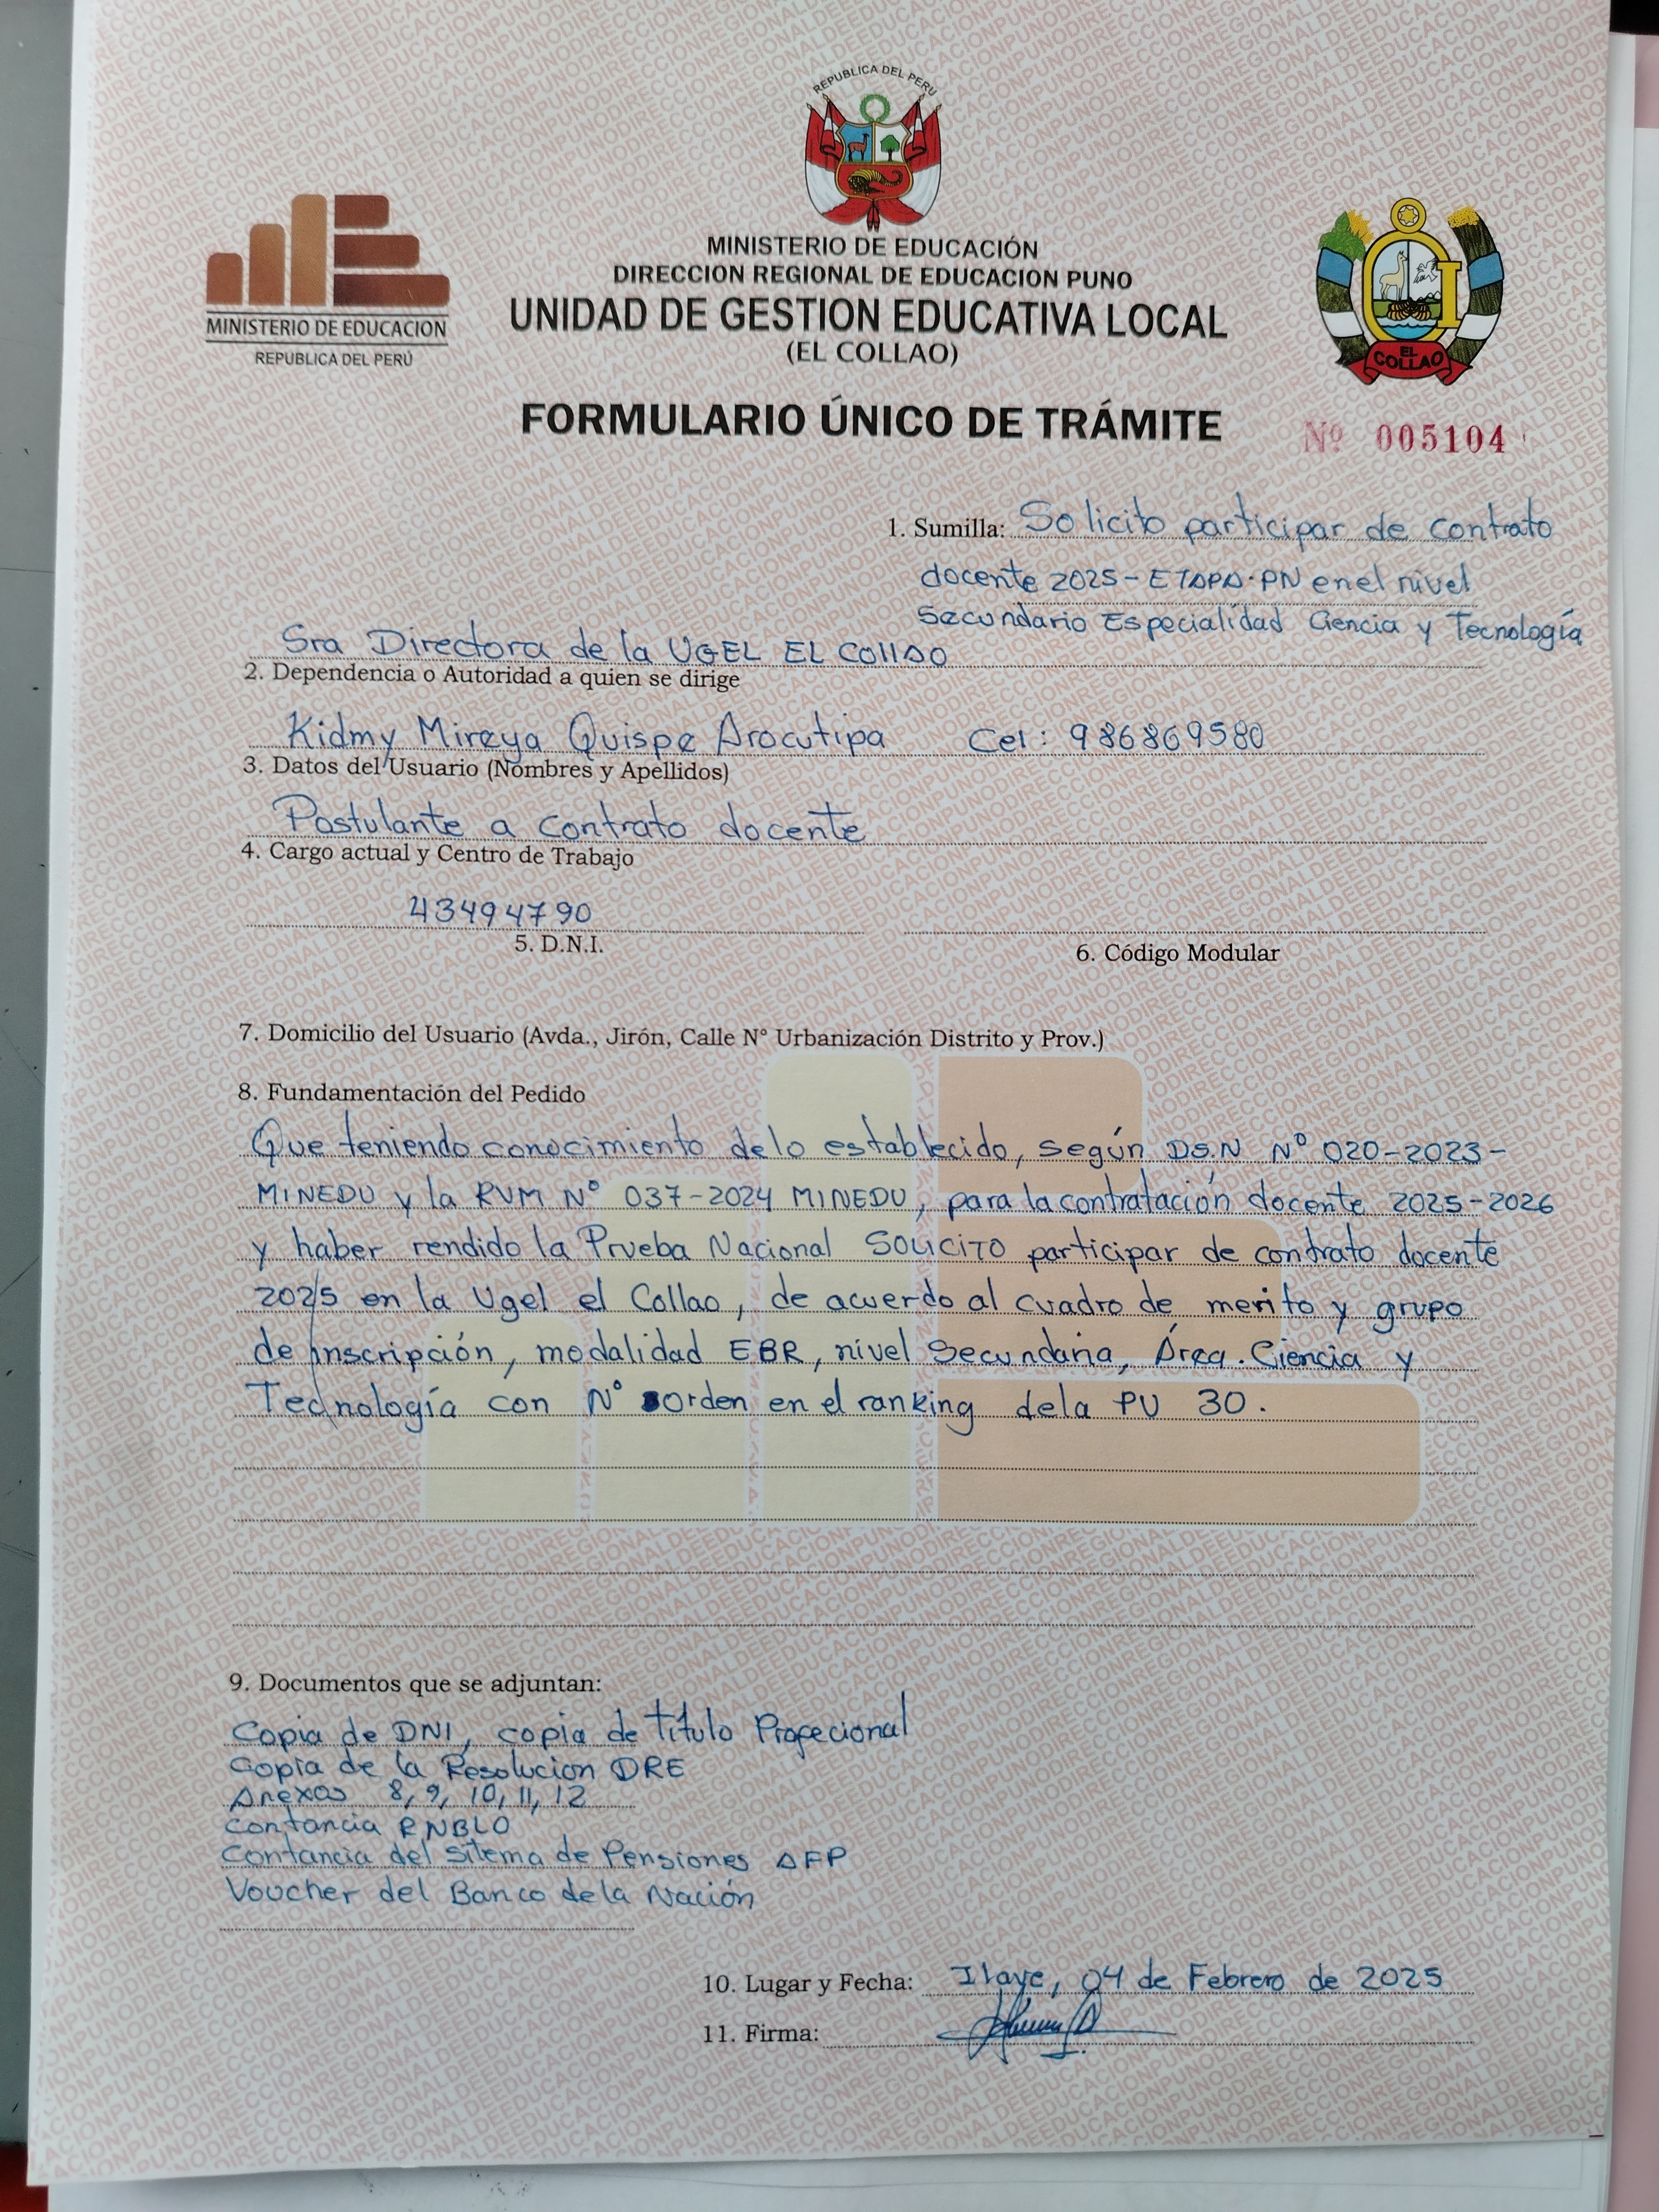 REPUBLICA DEL PERU
MINISTERIO DE EDUCACION
REPUBLICA DEL PERÚ
MINISTERIO DE EDUCACIÓN
DIRECCION REGIONAL DE EDUCACION PUNO
UNIDAD DE GESTION EDUCATIVA LOCAL
(EL COLLAO)
EL COLLAO
FORMULARIO ÚNICO DE TRÁMITE
Nº 005104
1. Sumilla: Solicito participar de contrato
docente 2025 - ETAPA-PN en el nivel
Secundario Especialidad Ciencia y Tecnología
Sra Directora de la UGEL EL Collao
2. Dependencia o Autoridad a quien se dirige
Kidmy Mireya Quispe Arocutipa Cel: 986869580
3. Datos del Usuario (Nombres y Apellidos)
Postulante a contrato docente
4. Cargo actual y Centro de Trabajo
43494790
5. D.N.I.
6. Código Modular
7. Domicilio del Usuario (Avda., Jirón, Calle N° Urbanización Distrito y Prov.)
8. Fundamentación del Pedido
Que teniendo conocimiento delo establecido, según DS.N N° 020-2023-
MINEDU y la RVM N° 037-2024 MINEDU, para la contratación docente 2025-2026
y haber rendido la Prueba Nacional SOLICITO participar de contrato docente
2025 en la Ugel el Collao, de acuerdo al cuadro de merito y grupo
de inscripción, modalidad EBR, nivel Secundaria, Área. Ciencia y
Tecnología con N° orden en el ranking dela PU 30.
9. Documentos que se adjuntan:
Copia de DNI, copia de titulo Profecional
Copia de la Resolucion DRE
Anexos 8, 9, 10, 11, 12
Contancia RNBLO
Contancia del Sitema de Pensiones AFP
Voucher del Banco de la Nación
10. Lugar y Fecha: Ilave, 04 de Febrero de 2025
11. Firma: